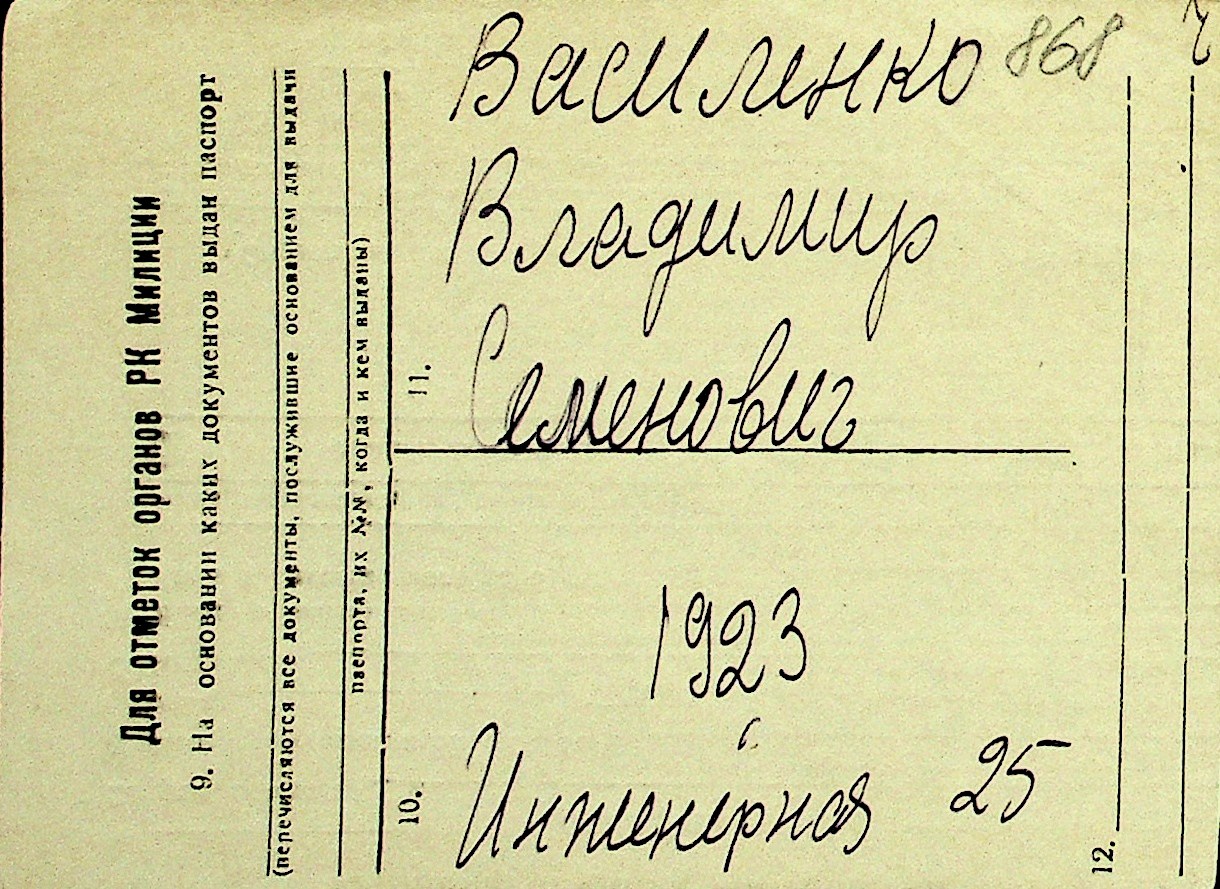 Василенко 868
Владимир
Семенович
1923
Инженерная 25
Для отметок органов РК Милиции
9. На основании каких документов выдан паспорт
(перечисляются все документы, послужившие основанием для выдачи
паспорта, их №№, когда и кем выданы)
10.
11.
12.